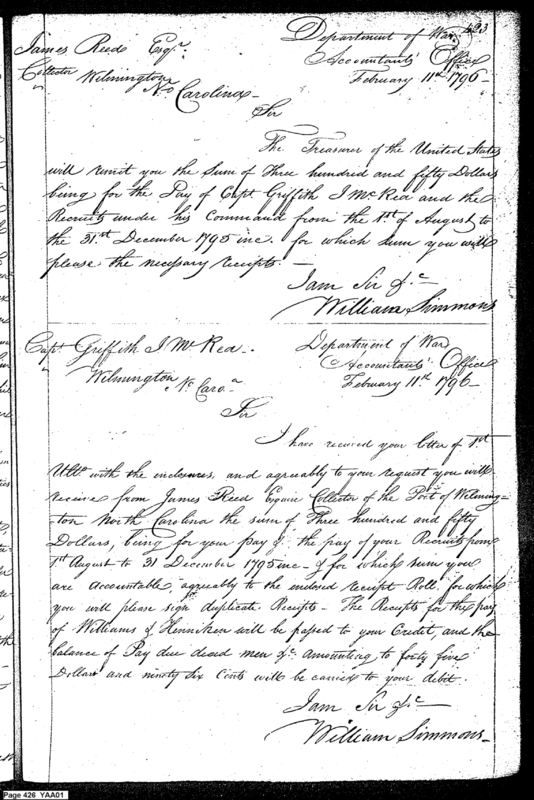 423
James Reed Esqr.
Collector
Wilmington
No Carolina
Department of War
Accountants' Office
February 11th 1796
Sir
The Treasurer of the United States
will remit you the Sum of Three hundred and fifty Dollars
being for the Pay of Capt Griffith J McRea and the
Recruits under his Command from the 1st of August to
the 31st December 1795 inc. for which sum you will
please the necessary receipts.
I am Sir &c
William Simmons
Capt Griffith J. McRea.
Wilmington No Caroa
Department of War
Accountants' Office
February 11th 1796
Sir
I have received your letter of 1st
Ulto with the enclosures, and agreeably to your request you will
receive from James Reed Esquire Collector of the Port of Wilming-
ton North Carolina the sum of Three hundred and fifty
Dollars, being for your pay & the pay of your Recruits from
1st August to 31 December 1795 inc - & for which sum you
are accountable agreeably to the enclosed receipt Roll for which
you will please sign duplicate Receipts - The Receipts for the pay
of Williams & Henniken will be passed to your Credit, and the
balance of Pay due dead men &c amounting to forty five
Dollars and ninety six Cents will be carried to your debit.
I am Sir &c
William Simmons
Page 426 YAA01